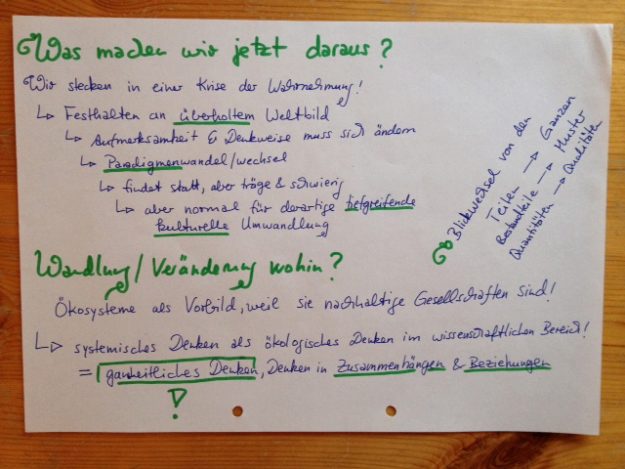 Was machen wir jetzt daraus?
Wir stecken in einer Krise der Wahrnehmung!
↳ Festhalten an überholtem Weltbild
↳ Aufmerksamkeit & Denkweise muss sich ändern
↳ Paradigmenwandel/wechsel
↳ findet statt, aber träge & schwierig
↳ aber normal für derartige tiefgreifende
kulturelle Umwandlung
Blickwechsel von den
Teilen → Ganzen
Bestandteile → Muster
Quantitäten → Qualitäten
Wandlung/Veränderung wohin?
Ökosysteme als Vorbild, weil sie nachhaltige Gesellschaften sind!
↳ systemisches Denken als ökologisches Denken im wissenschaftlichen Bereich!
= ganzheitliches Denken, Denken in Zusammenhängen & Beziehungen
!